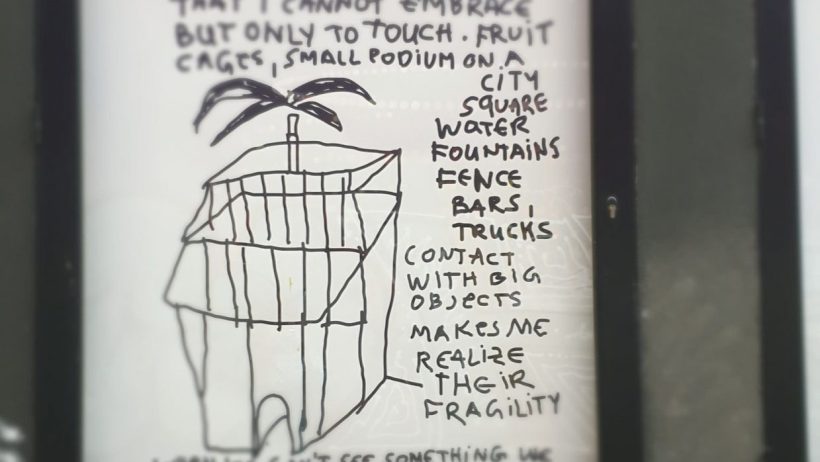 THAT I CANNOT EMBRACE
BUT ONLY TO TOUCH. FRUIT
CAGES, SMALL PODIUM ON A
CITY
SQUARE
WATER
FOUNTAINS
FENCE
BARS,
TRUCKS
CONTACT
WITH BIG
OBJECTS
MAKES ME
REALIZE
THEIR
FRAGILITY
CAN'T SEE SOMETHING WE